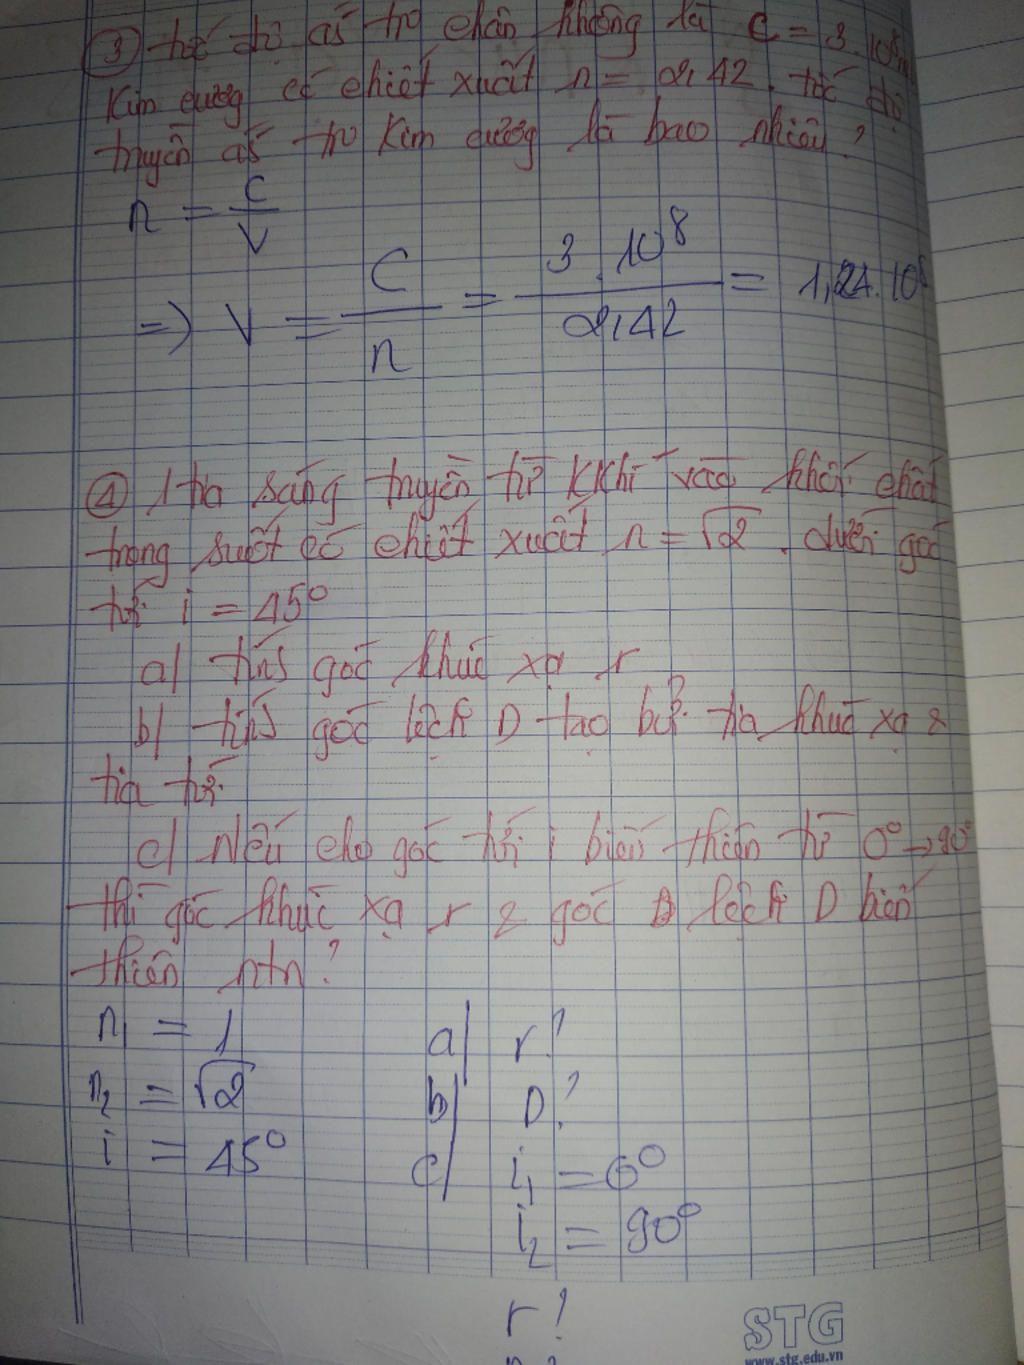 ③ tốc độ as trg chân không là c = 3.10⁸m
Kim cương có chiết xuất n = 2,42. tốc độ
truyền as trg Kim cương là bao nhiêu?
n = c/v
=> v = c/n = 3.10⁸/2,42 = 1,24.10⁸
④ 1 tia sáng truyền từ KKhí vào khối chất
trong suốt có chiết xuất n = √2. dưới góc
tới i = 45⁰
a/ tính góc khúc xạ r
b/ tính góc lệch D tạo bởi tia khúc xạ &
tia tới
c/ Nếu cho góc tới i biến thiên từ 0⁰ → 90⁰
thì góc khúc xạ r & góc lệch D biến
thiên ntn?
n₁ = 1 a/ r?
n₂ = √2 b/ D?
i = 45⁰ c/ i₁ = 0⁰
i₂ = 90⁰
r?
STG
www.stg.edu.vn